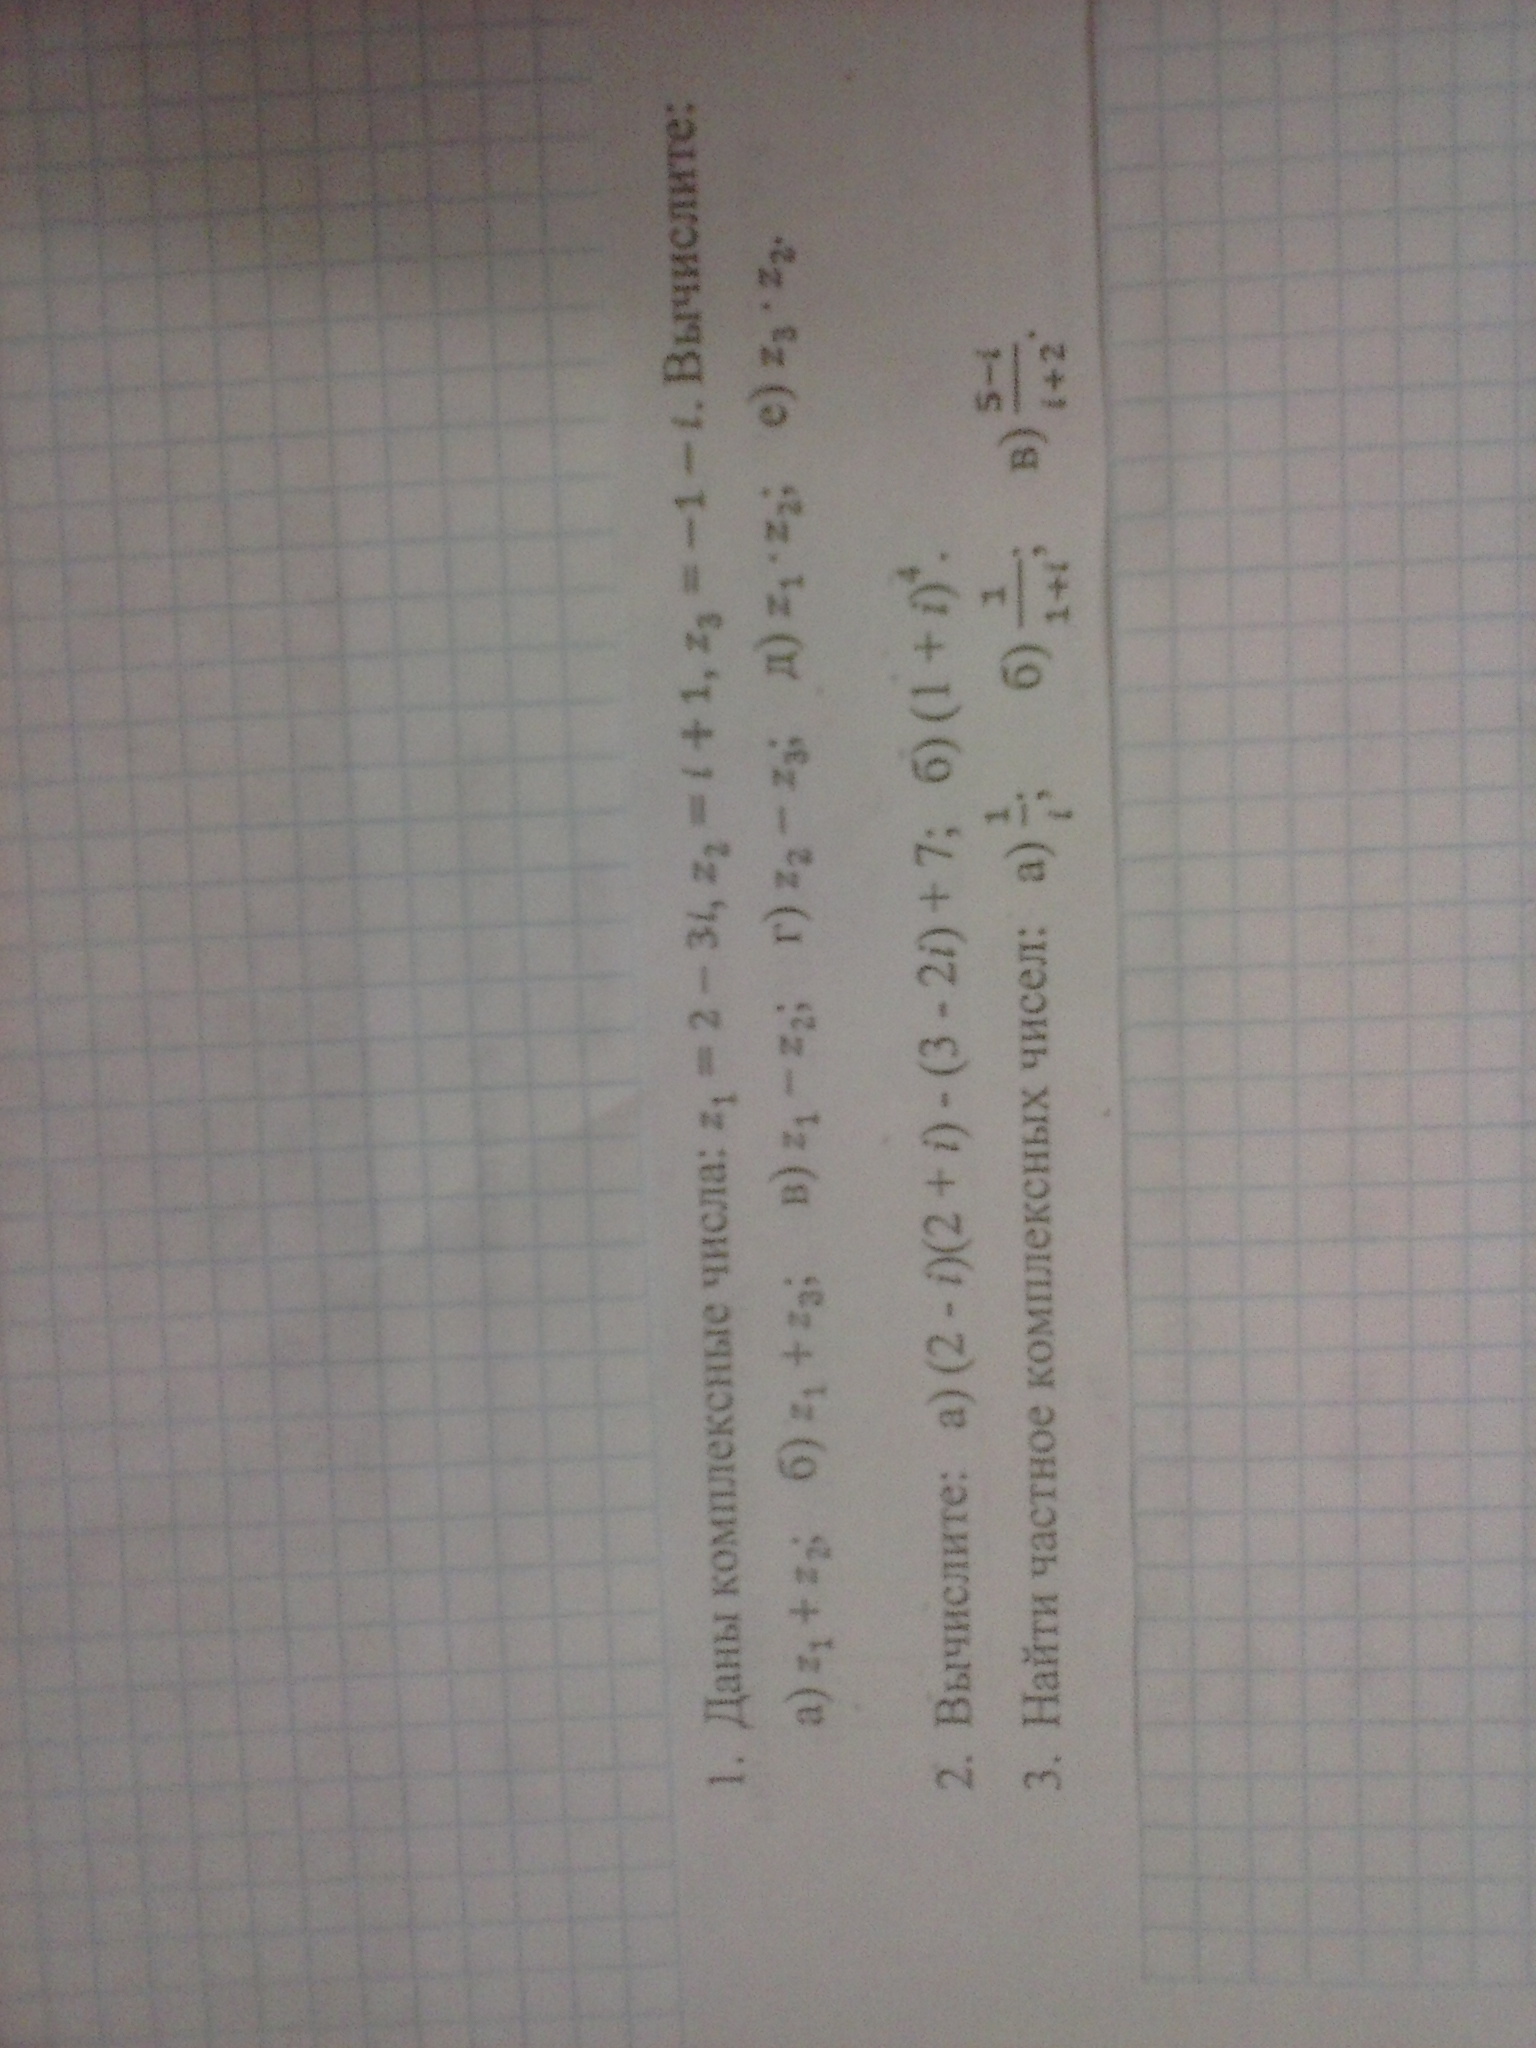 1. Даны комплексные числа: z₁ = 2 − 3i, z₂ = i + 1, z₃ = −1 − i. Вычислите:
а) z₁ + z₂; б) z₁ + z₃; в) z₁ − z₂; г) z₂ − z₃; д) z₁ · z₂; е) z₃ · z₂.
2. Вычислите: а) (2 - i)(2 + i) - (3 - 2i) + 7; б) (1 + i)⁴.
3. Найти частное комплексных чисел: а) 1/i; б) 1/(1+i); в) (5−i)/(i+2).